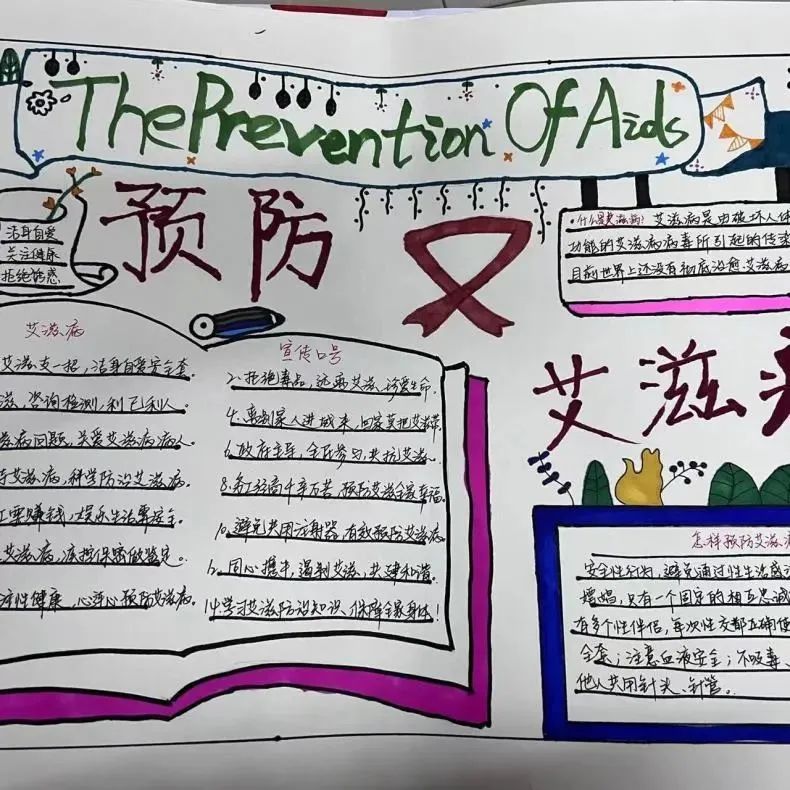 The Prevention Of Aids
预防
洁身自爱
关注健康
拒绝诱惑
什么是艾滋病?艾滋病是由破坏人体
功能的艾滋病病毒所引起的传染
目前世界上还没有彻底治愈艾滋病
艾滋病
艾滋支一招,洁身自爱安全套。
滋,咨询检测,利己利人。
滋病问题,关爱艾滋病病人。
艾滋病,科学防治艾滋病。
要赚钱,娱乐生活要安全。
艾滋病,
性健康,预防艾滋病。
宣传口号
2.拒绝毒品,远离艾滋,珍爱生命。
4.离别家人进城来,回家莫把艾滋带
6.政府主导,全民参与,共抗艾滋。
8.务工经商千辛万苦,预防艾滋全家幸福。
10.避免共用注射器,有效预防艾滋病
12.同心携手,遏制艾滋,共建和谐。
14.学习艾滋防治知识、保障全家身体!
艾滋
怎样预防艾滋病
安全性行为,避免通过性生活感
增媚,只有一个固定的相互忠诚
有多个性伴侣,每次性交都正确使
全套;注意血液安全;不吸毒、
他人共用针头、针管。